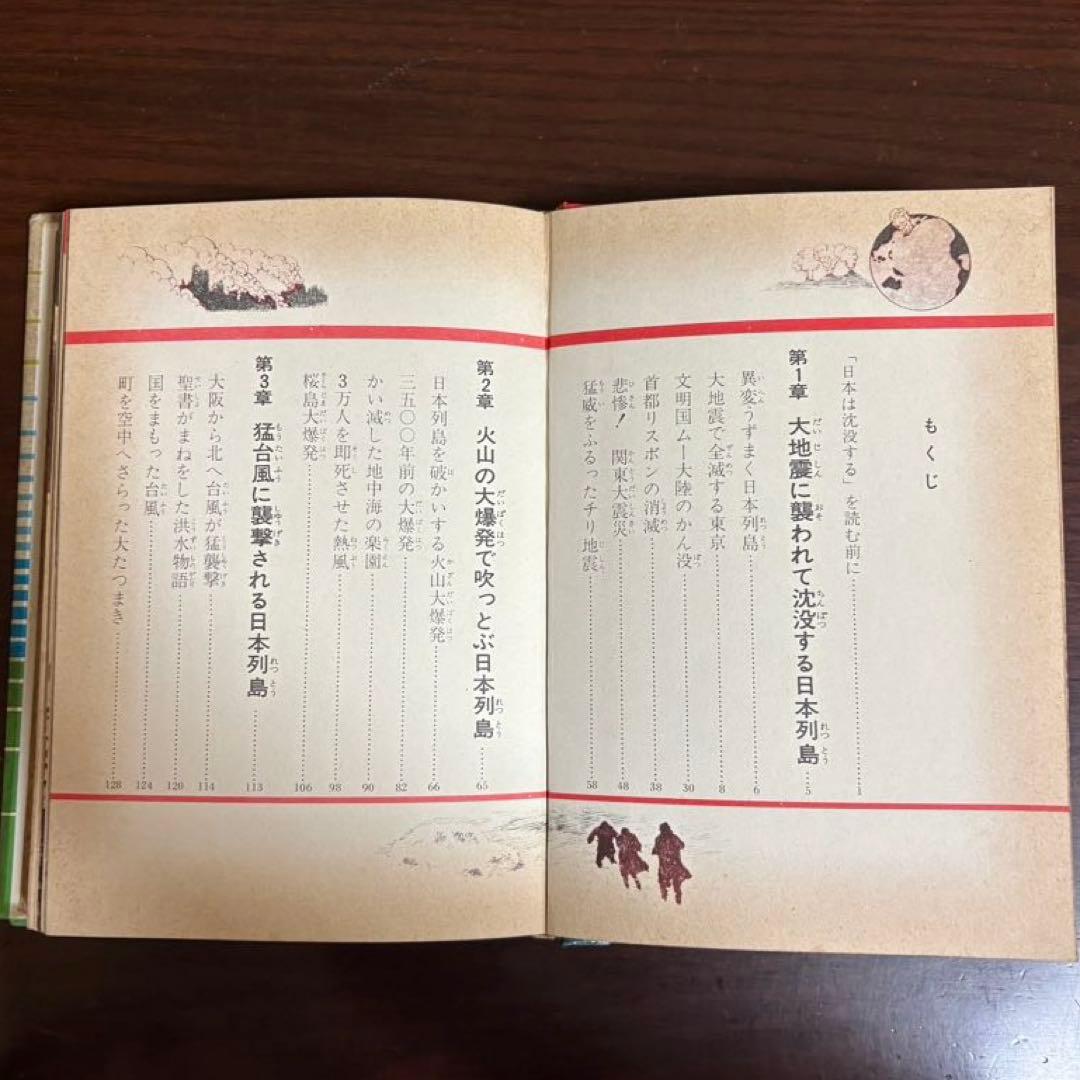 もくじ
「日本は沈没する」を読む前に……1
第1章 大地震に襲われて沈没する日本列島……5
異変うずまく日本列島……6
大地震で全滅する東京……8
文明国ムー大陸のかん没……30
首都リスボンの消滅……38
悲惨！ 関東大震災……48
猛威をふるったチリ地震……58
第2章 火山の大爆発で吹っとぶ日本列島……65
日本列島を破かいする火山大爆発……66
三五〇〇年前の大爆発……82
かい滅した地中海の楽園……90
3万人を即死させた熱風……98
桜島大爆発……106
第3章 猛台風に襲撃される日本列島……113
大阪から北へ台風が猛襲撃……114
聖書がまねをした洪水物語……120
国をまもった台風……124
町を空中へさらった大たつまき……128